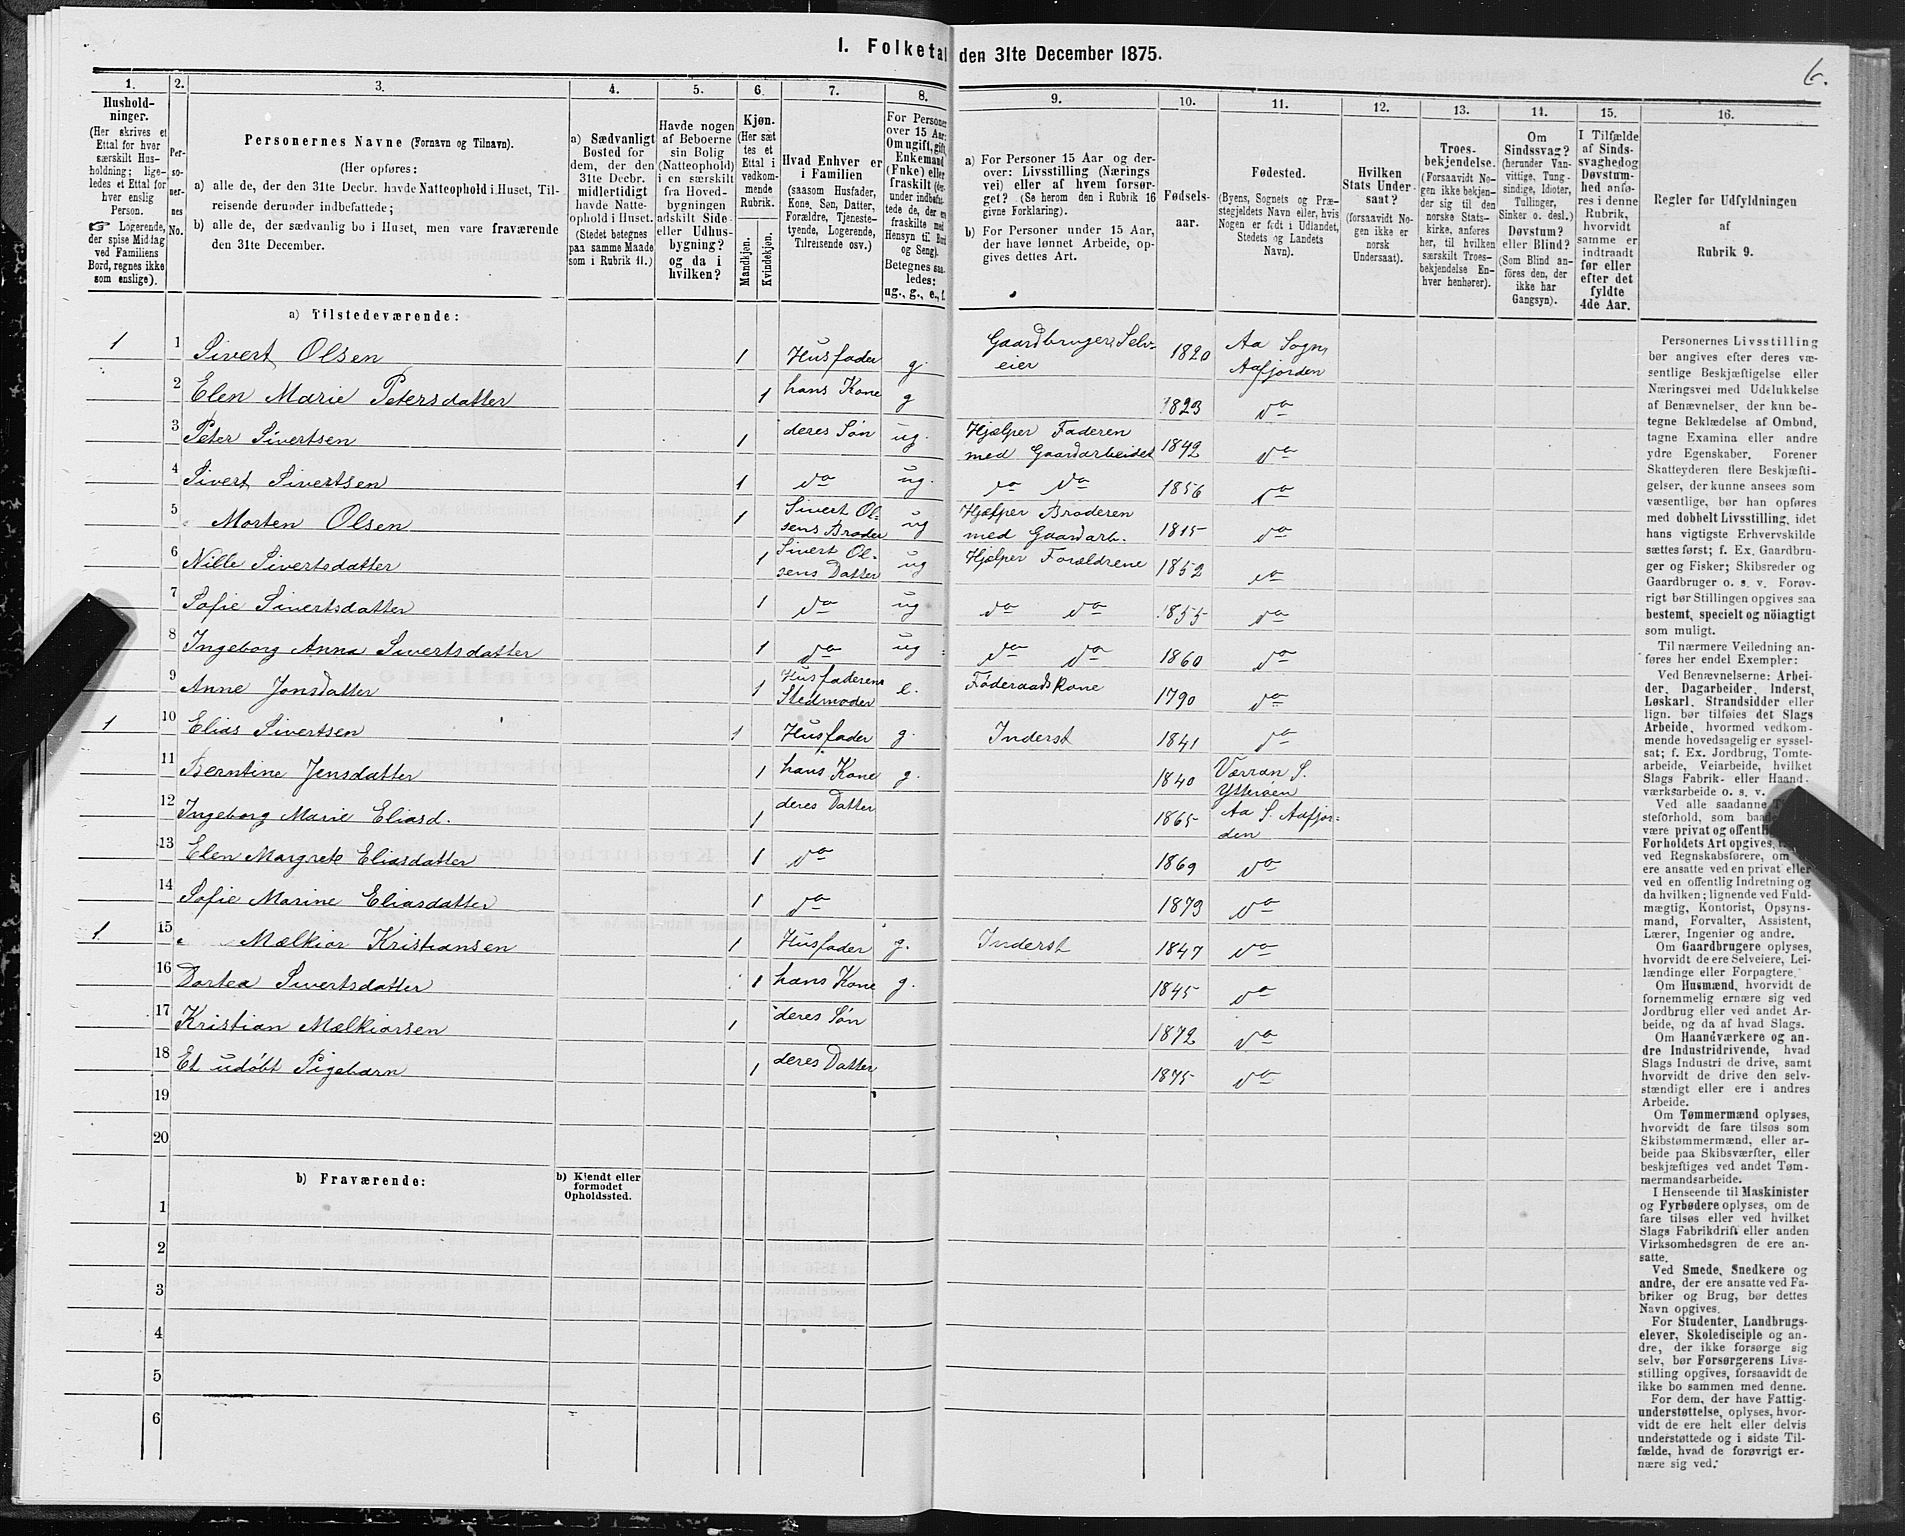 I. Folketal den 31te December 1875.
6.
1.
Hushold-
ninger.
(Her skrives et
Ettal for hver
særskilt Hus-
holdning; lige-
ledes et Ettal for
hver enslig
Person.
☞ Logerende,
der spise Middag
ved Familiens
Bord, regnes ikke
som enslige).
2.
Per-
so-
ner-
nes
No.
3.
Personernes Navne (Fornavn og Tilnavn).
(Her opføres:
a) alle de, der den 31te Decbr. havde Natteophold i Huset, Til-
reisende derunder indbefattede;
b) alle de, der sædvanlig bo i Huset, men vare fraværende
den 31te December.
4.
a) Sædvanligt
Bosted for
dem, der den
31te Decbr.
midlertidigt
havde Natte-
ophold i Huset.
(Stedet betegnes
paa samme Maade
som i Rubrik 11.)
5.
Havde nogen
af Beboerne
sin Bolig
(Natteophold)
i en særskilt
fra Hoved-
bygningen
adskilt Side-
eller Udhus-
bygning?
og da i
hvilken?
6.
Kjøn.
(Her sæt-
tes et
Ettal i
vedkom-
mende
Rubrik.
Mandkjøn.
Kvindekjøn.
7.
Hvad Enhver er
i Familien
(saasom Husfader,
Kone, Søn, Datter,
Forældre, Tjeneste-
tyende, Logerende,
Tilreisende osv.)
8.
For Personer
over 15 Aar:
Om ugift, gift,
Enkemand
(Enke) eller
fraskilt (der-
under indbefat-
tede de, der ere
fraskilte med
Hensyn til Bord
og Seng).
Betegnes saa-
ledes:
ug., g., e., f.
9.
a) For Personer 15 Aar og der-
over: Livsstilling (Nærings
vei) eller af hvem forsør-
get? (Se herom den i Rubrik 16
givne Forklaring).
b) For Personer under 15 Aar,
der have lønnet Arbeide, op-
gives dettes Art.
10.
Fødsels-
aar.
11.
Fødested.
(Byens, Sognets og Præ-
stegjeldets Navn eller, hvis
Nogen er født i Udlandet,
Stedets og Landets
Navn).
12.
Hvilken
Stats Under-
saat?
(forsaavidt No-
gen ikke er
norsk
Undersaat).
13.
Troes-
bekjendelse.
(Forsaavidt No-
gen ikke bekjen-
der sig til den
norske Stats-
kirke, anføres
her, til hvilken
særskilt Troes-
bekjendelse En-
hver henhører).
14.
Om
Sindssvag?
(herunder Van-
vittige, Tung-
sindige, Idioter,
Tullinger,
Sinker o. desl.)
Døvstum?
eller Blind?
(Som Blind an-
føres den, der
ikke har
Gangsyn).
15.
I Tilfælde
af Sinds-
svaghed og
Døvstum-
hed anfø-
res i denne
Rubrik,
hvorvidt
samme er
indtraadt
før eller
efter det
fyldte
4de Aar.
16.
Regler for Udfyldningen
af
Rubrik 9.
a) Tilstedeværende:
1 1 Sivert Olsen 1 Husfader g. Gaardbruger, Selv-
eier 1820 Aa Sogn,
Aafjorden
2 Elen Marie Petersdatter 1 hans Kone g 1823 do
3 Peter Sivertsen 1 deres Søn ug. Hjælper Faderen
med Gaardarbeidet 1842 do
4 Sivert Sivertsen 1 do ug. do do 1856 do
5 Morten Olsen 1 Sivert Ol-
sens Broder ug Hjælper Broderen
med Gaardarb. 1815 do
6 Nille Sivertsdatter 1 Sivert Ol-
sens Datter ug Hjælper Forældrene 1852 do
7 Sofie Sivertsdatter 1 do ug do do 1855 do
8 Ingeborg Anna Sivertsdatter 1 do ug do do 1860 do
9 Anne Jonsdatter 1 Husfaderens
Stedmoder e. Føderaadskone 1790 do
1 10 Elias Sivertsen 1 Husfader g. Inderst 1841 do
11 Berntine Jensdatter 1 hans Kone g. 1840 Værran S.
Ytterøen
12 Ingeborg Marie Eliasd. 1 deres Datter 1865 Aa S. Aafjor-
den
13 Elen Margrete Eliasdatter 1 do 1869 do
14 Sofie Marine Eliasdatter 1 do 1873 do
1 15 Mælkior Kristiansen 1 Husfader g. Inderst 1847 do
16 Dortea Sivertsdatter 1 hans Kone g. 1845 do
17 Kristian Mælkiorsen 1 deres Søn 1872 do
18 Et udøbt Pigebarn 1 deres Datter 1875 do
19
20
b) Fraværende:
b) Kjendt eller
formodet
Opholdssted.
1
2
3
4
5
6
Personernes Livsstilling
bør angives efter deres væ-
sentlige Beskjæftigelse eller
Næringsvei med Udelukkelse
af Benævnelser, der kun be-
tegne Beklædelse af Ombud,
tagne Examina eller andre
ydre Egenskaber. Forener
Skatteyderen flere Beskjæfti-
gelser, der kunne ansees som
væsentlige, bør han opføres
med dobbelt Livsstilling, idet
hans vigtigste Erhvervskilde
sættes først; f. Ex. Gaardbru-
ger og Fisker; Skibsreder og
Gaardbruger o. s. v. Forøv-
rigt bør Stillingen opgives saa
bestemt, specielt og nöiagtigt
som muligt.
Til nærmere Veiledning an-
føres her endel Exempler:
Ved Benævnelserne: Arbei-
der, Dagarbeider, Inderst,
Løskarl, Strandsidder eller
lign. bør tilføies det Slags
Arbeide, hvormed vedkom-
mende hovedsagelig er syssel-
sat; f. Ex. Jordbrug, Tomte-
arbeide, Veiarbeide, hvilket
Slags Fabrik- eller Haand-
værksarbeide o. s. v.
Ved alle saadanne
steforhold, som
være privat og offentlig
Forholdets Art opgives,
ved Regnskabsførere, om
ere ansatte ved en privat eller
ved en offentlig Indretning og
da hvilken; lignende ved Fuld-
mægtig, Kontorist, Opsyns-
mand, Forvalter, Assistent,
Lærer, Ingeniør og andre.
Om Gaardbrugere oplyses,
hvorvidt de ere Selveiere, Lei-
lændinge eller Forpagtere.
Om Husmænd, hvorvidt de
fornemmelig ernære sig ved
Jordbrug eller ved andet Ar-
beide, og da af hvad Slags.
Om Haandværkere og an-
dre Industridrivende, hvad
Slags Industri de drive, samt
hvorvidt de drive den selv-
stændigt eller ere i andres
Arbeide.
Om Tømmermænd oplyses,
hvorvidt de fare tilsøs som
Skibstømmermænd, eller ar-
beide paa Skibsværfter, eller
beskjæftiges ved andet Tøm-
mermandsarbeide.
I Henseende til Maskinister
og Fyrbødere oplyses, om de
fare tilsøs eller ved hvilket
Slags Fabrikdrift eller anden
Virksomhedsgren de ere an-
satte.
Ved Smede, Snedkere og
andre, der ere ansatte ved Fa-
briker og Brug, bør dettes
Navn opgives.
For Studenter, Landbrugs-
elever, Skoledisciple og an-
dre, der ikke forsørge sig
selv, bør Forsørgerens Livs-
stilling opgives, forsaavidt de
ikke bo sammen med denne.
For dem, der have Fattig-
understøttelse, oplyses, hvor-
vidt de ere helt eller delvis
understøttede og i sidste Til-
fælde, hvad de forøvrigt er-
nære sig ved.